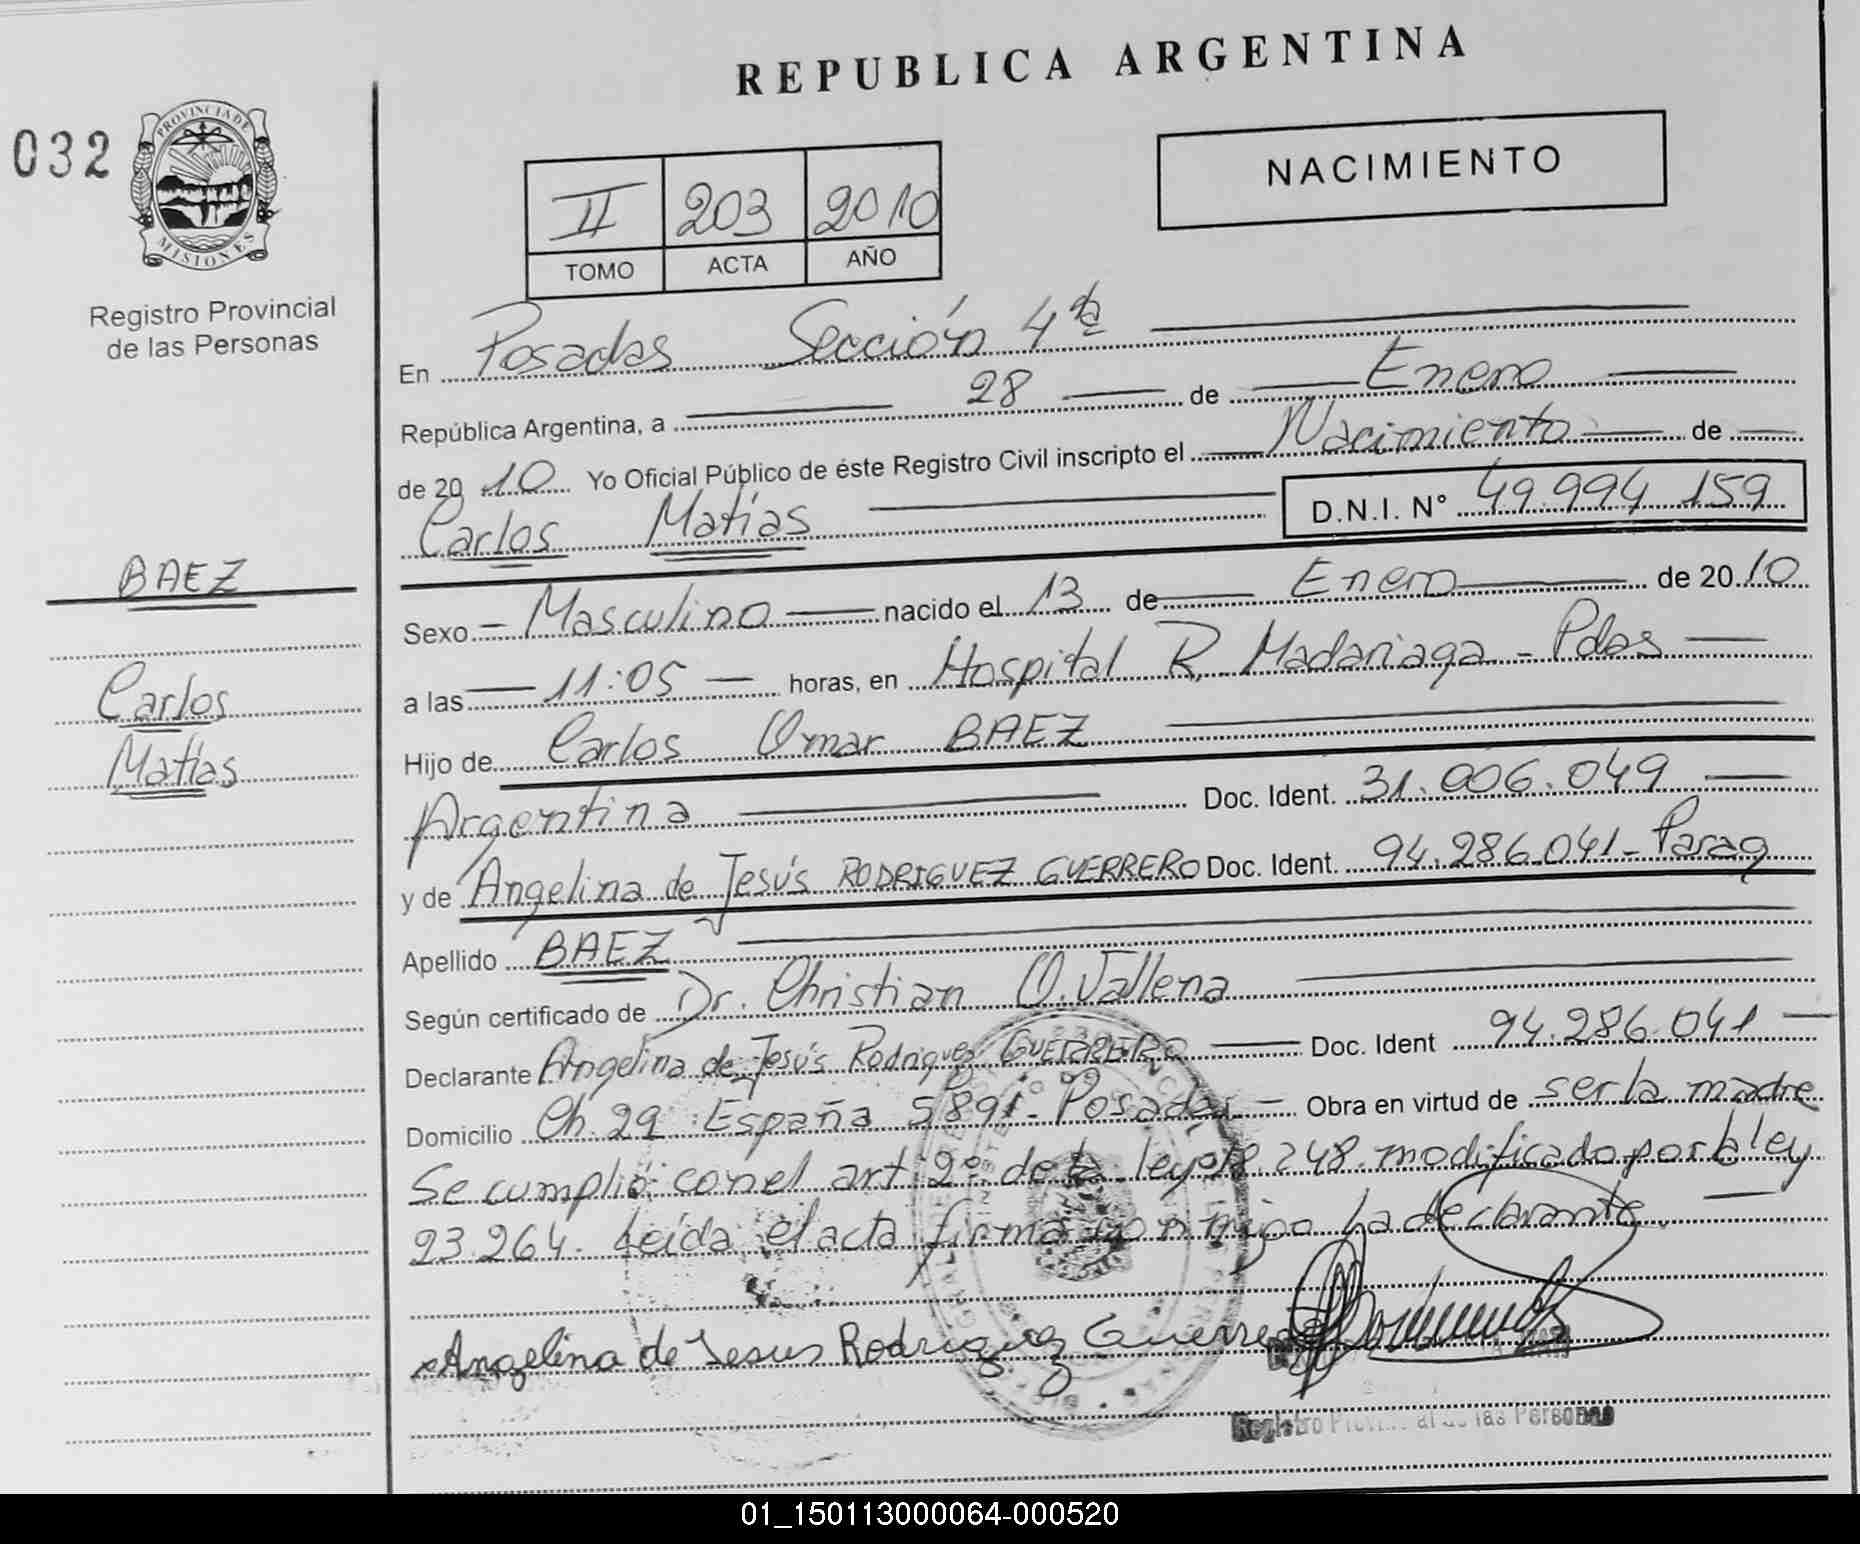 REPUBLICA ARGENTINA
032
PROVINCIA DE
MISIONES
Registro Provincial
de las Personas
NACIMIENTO
II 203 2010
TOMO ACTA AÑO
En Posadas Sección 4ta
República Argentina, a 28 de Enero
de 2010 Yo Oficial Público de éste Registro Civil inscripto el Nacimiento de
Carlos Matías D.N.I. N° 49.994.159
BAEZ
Carlos
Matías
Sexo Masculino nacido el 13 de Enero de 2010
a las 11:05 horas, en Hospital R. Madariaga - Pdas
Hijo de Carlos Omar BAEZ
Argentina Doc. Ident. 31.006.049
y de Angelina de Jesús RODRIGUEZ GUERRERO Doc. Ident. 94.286.041 - Parag
Apellido BAEZ
Según certificado de Dr. Christian O. Vallena
Declarante Angelina de Jesús Rodriguez GUERRERO Doc. Ident 94.286.041
Domicilio Ch. 29 España 5891 - Posadas - Obra en virtud de ser la madre
Se cumplió con el art 2° de la ley 18.248 modificado por la ley
23.264. Leída el acta firma conmigo la declarante.
Angelina de Jesus Rodriguez Guerrero
Registro Provincial de las Personas
01_150113000064-000520